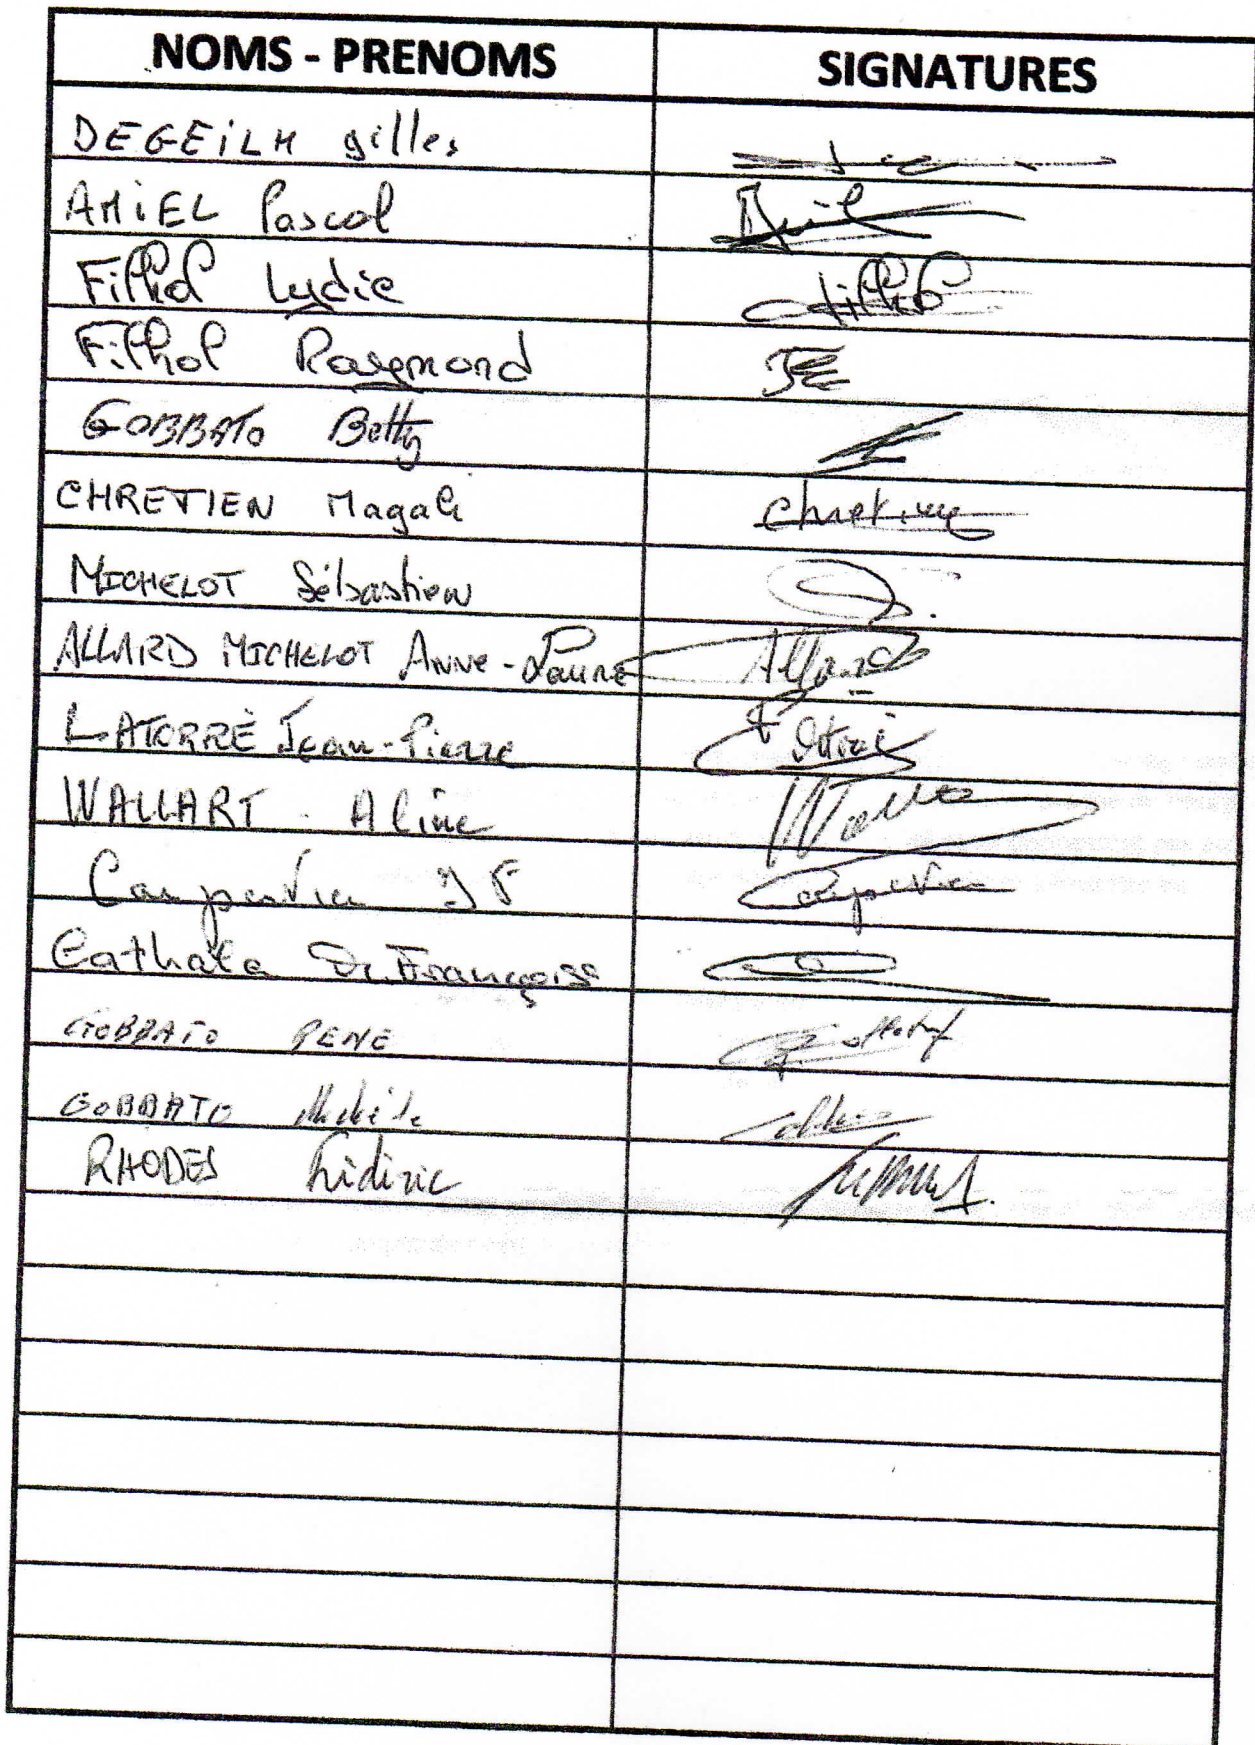 NOMS - PRENOMS SIGNATURES
DEGEILH Gilles
AMIEL Pascal
Filhol Lydie Filhol
Filhol Raymond
GOBBATO Betty
CHRETIEN Magali Chretien
MICHELOT Sébastien
ALLARD MICHELOT Anne-Laure Allard
LATORRÈ Jean-Pierre
WALLART Aline
Carpentier JF Carpentier
Cathala Françoise
GOBBATO RENE
GOBBATO
RHODES Frédéric